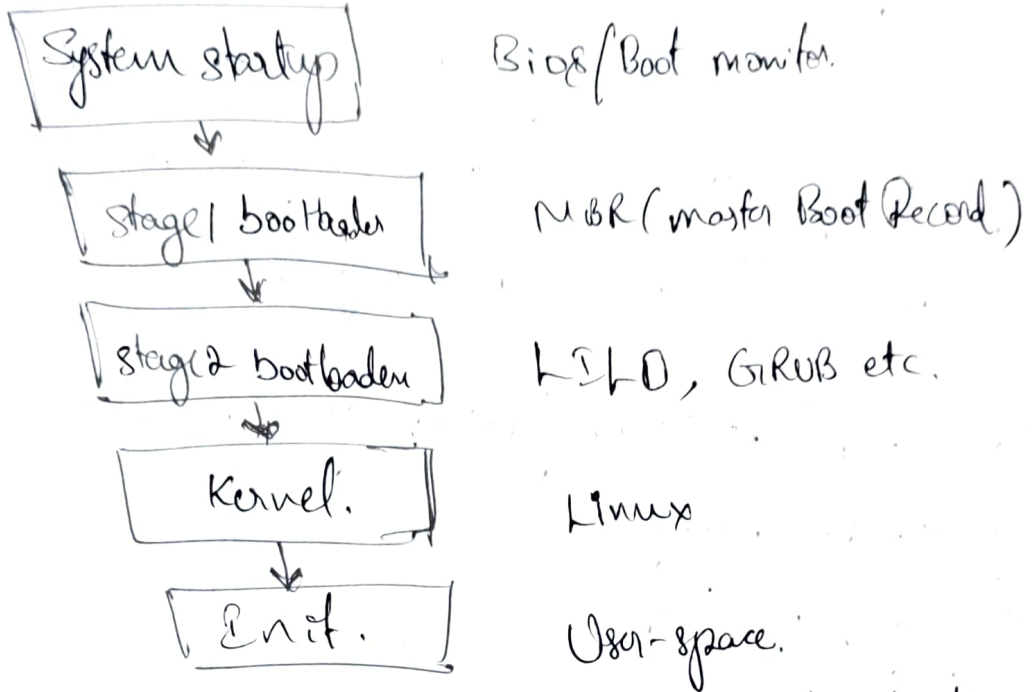 System startup Bios/Boot monitor.
stage1 bootloader MBR (master Boot Record)
stage2 bootloader LILO, GRUB etc.
Kernel. Linux
Init. User-space.